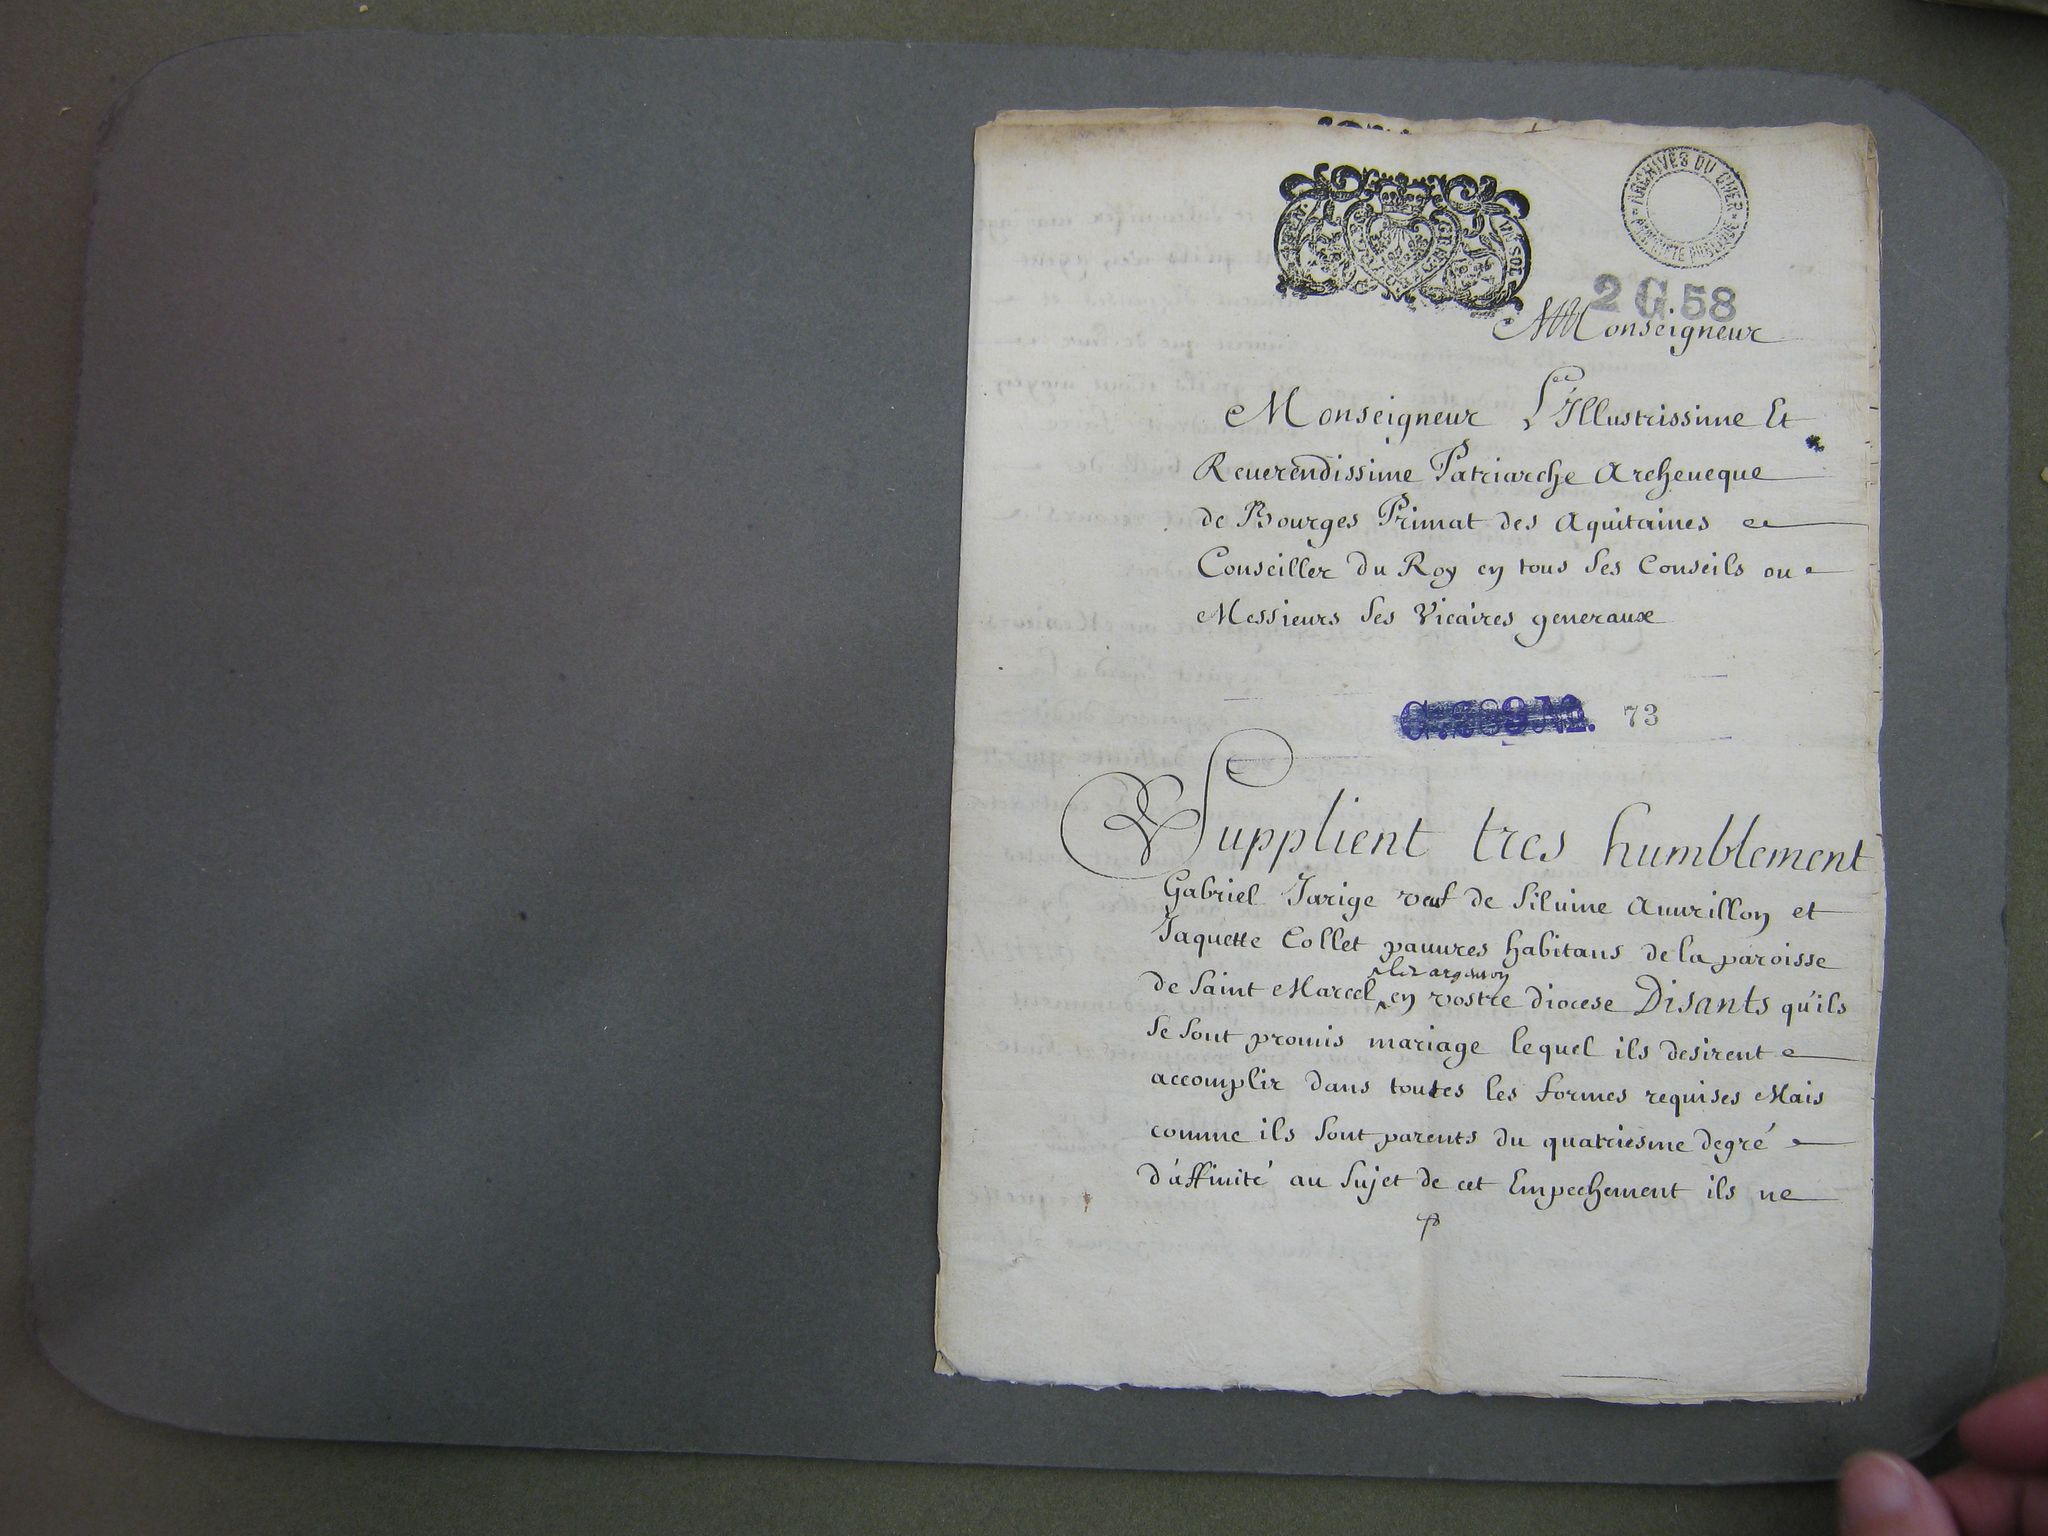 ARCHIVES DU CHER
2 G 58
Monseigneur
Monseigneur L'Illustrissime Et
Reuerendissime Patriarche Archeueque
de Bourges Primat des Aquitaines
Conseiller du Roy en tous Ses Conseils ou
Messieurs Ses Vicaires generaux
73
Supplient tres humblement
Gabriel Jarige veuf de Siluine Auurillon et
Jaquette Collet pauures habitans de la paroisse
lez argenton
de Saint Marcel en vostre diocese Disants qu'ils
Se Sont promis mariage lequel ils desirent
accomplir dans toutes les formes requises Mais
comme ils Sont parents du quatriesme degré
d'affinité au Sujet de cet Empechement ils ne